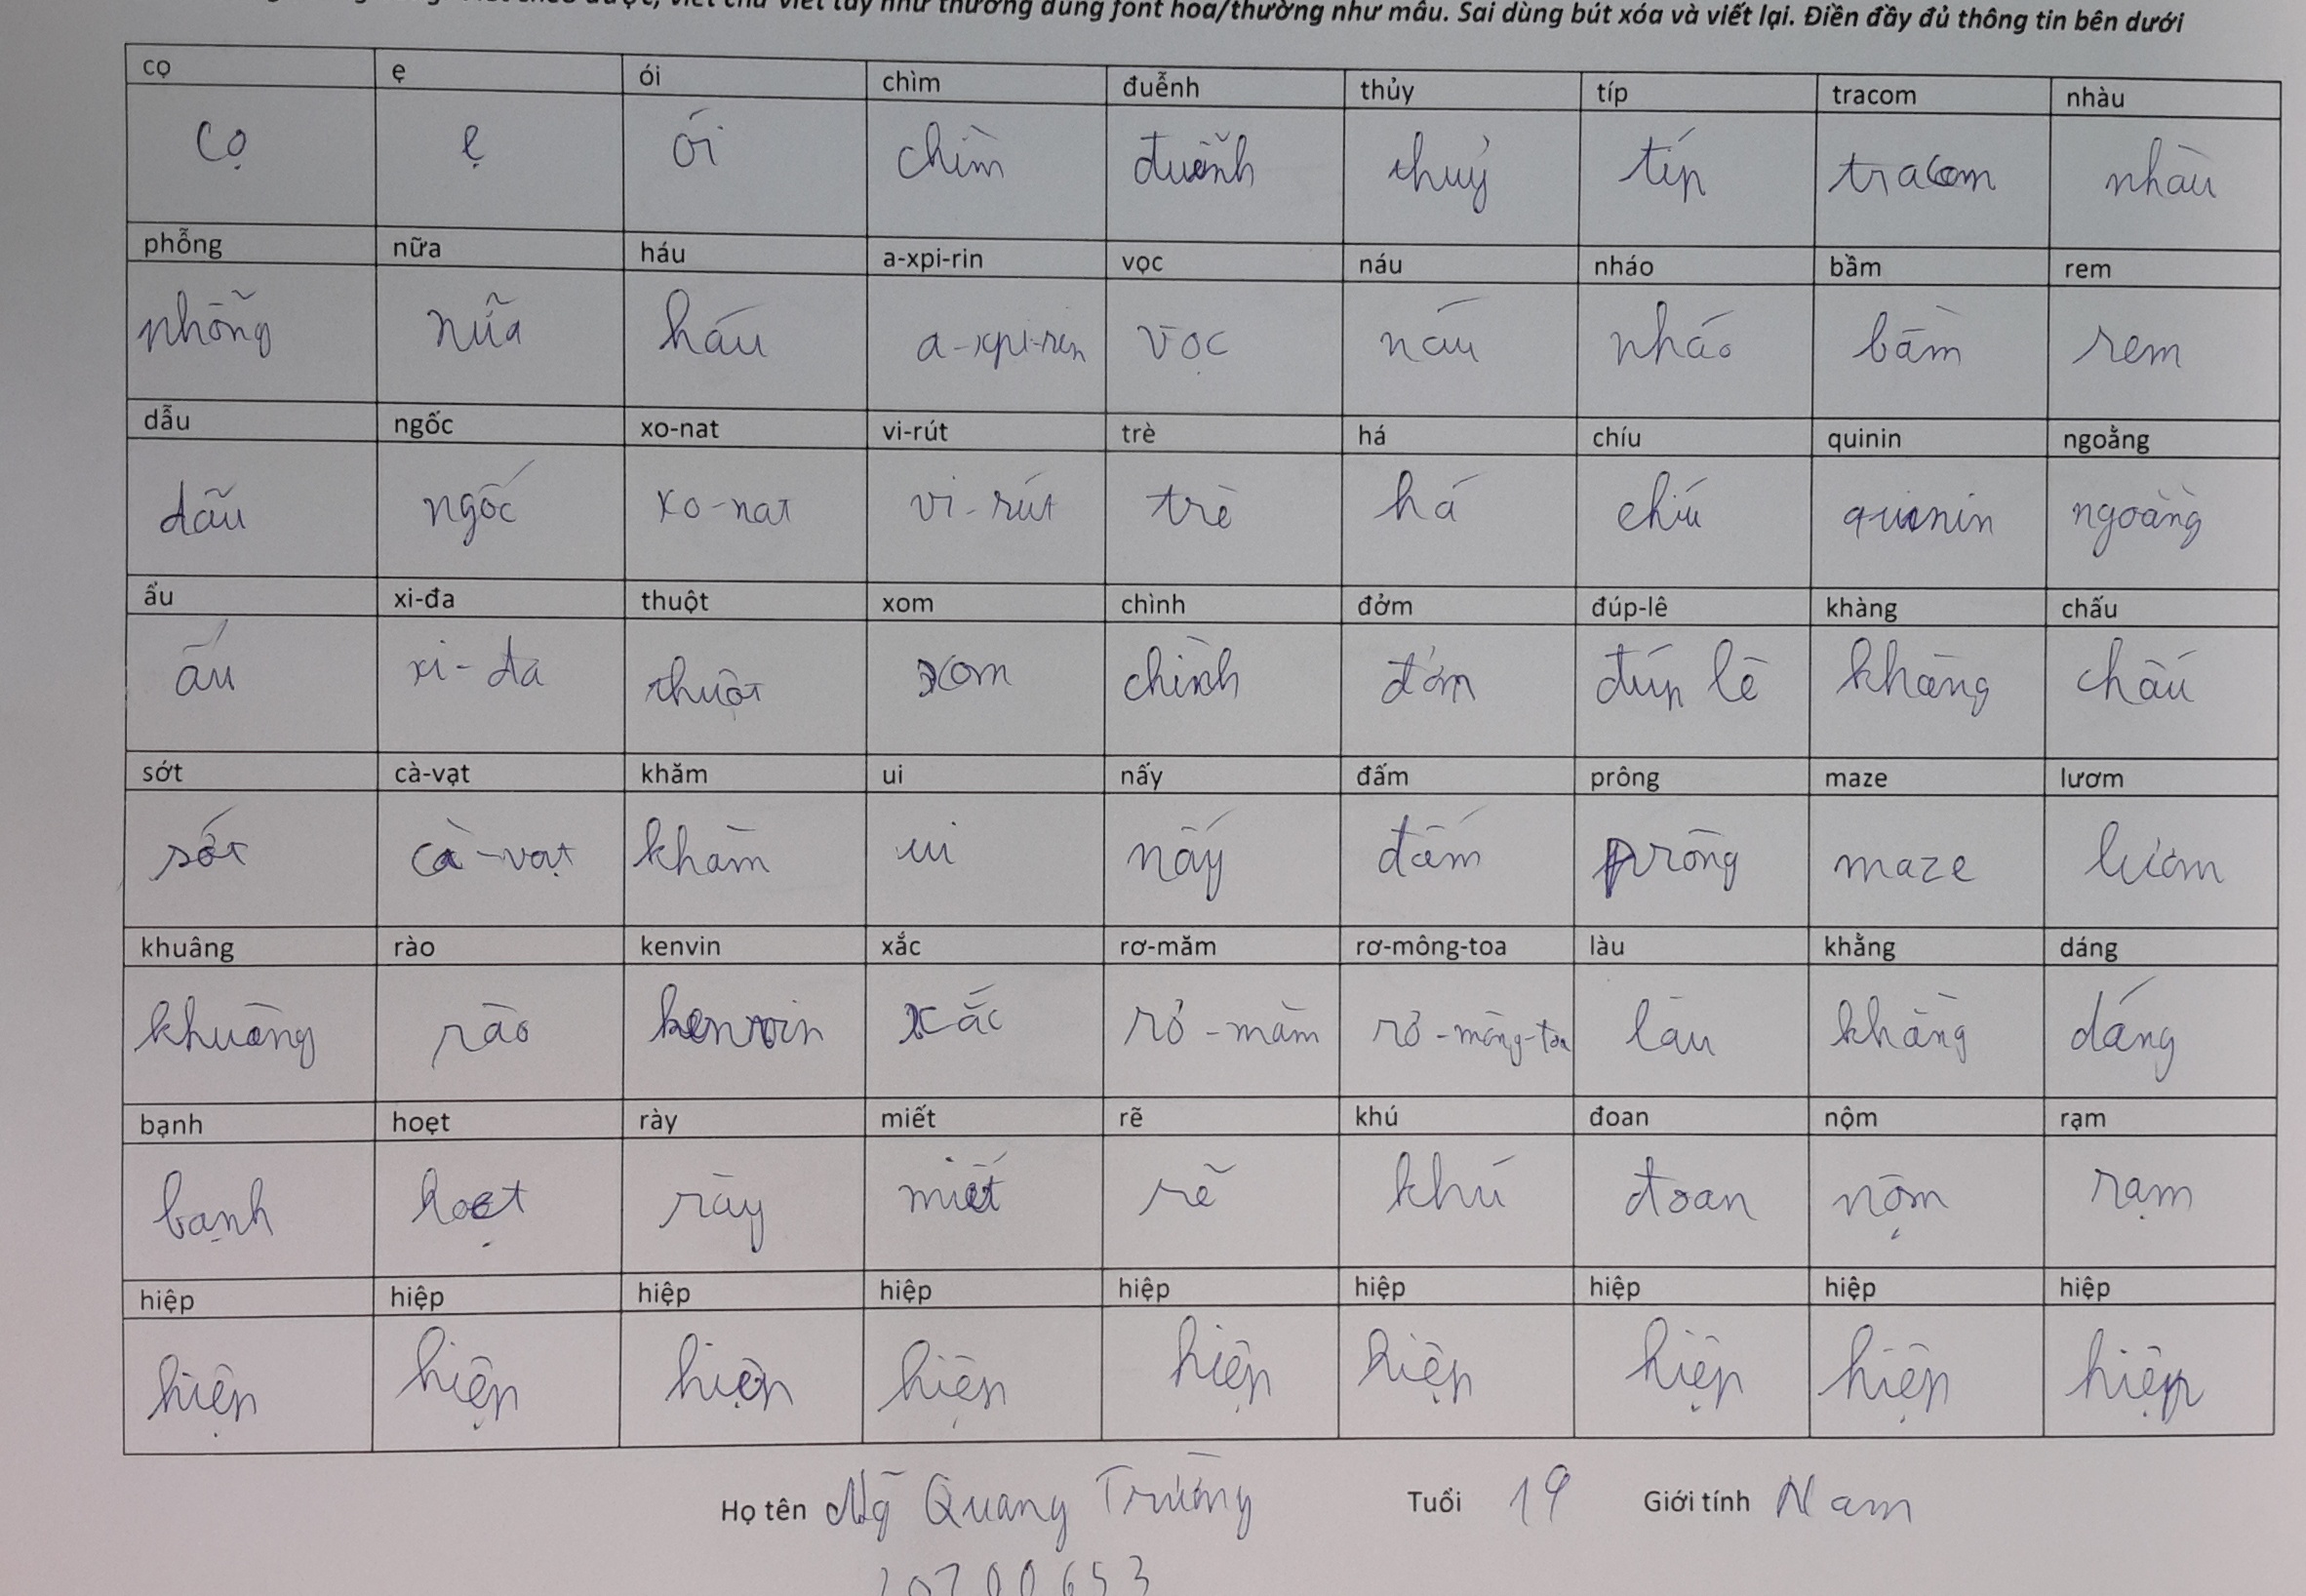 viết chữ viết tay như thường dùng font hoa/thường như mẫu. Sai dùng bút xóa và viết lại. Điền đầy đủ thông tin bên dưới
cọ ẹ ói chìm đuễnh thủy típ tracom nhàu
cọ ẹ ói chìm đuễnh thuỷ típ tracom nhàu
phỗng nữa háu a-xpi-rin vọc náu nháo bầm rem
phỗng nữa háu a-xpi-rin vọc náu nháo bầm rem
dẫu ngốc xo-nat vi-rút trè há chíu quinin ngoằng
dẫu ngốc xo-nat vi-rút trè há chíu quinin ngoằng
ẩu xi-đa thuột xom chình đởm đúp-lê khàng chấu
ẩu xi-đa thuột xom chình đởm đúp lê khàng chấu
sớt cà-vạt khăm ui nấy đấm prông maze lươm
sớt cà-vạt khăm ui nấy đấm prông maze lươm
khuâng rào kenvin xắc rơ-măm rơ-mông-toa làu khằng dáng
khuâng rào kenvin xắc rơ-măm rơ-mông-toa làu khằng dáng
bạnh hoẹt rày miết rẽ khú đoan nộm rạm
bạnh hoẹt rày miết rẽ khú đoan nộm rạm
hiệp hiệp hiệp hiệp hiệp hiệp hiệp hiệp hiệp
hiệp hiệp hiệp hiệp hiệp hiệp hiệp hiệp hiệp
Họ tên Quang Trường Tuổi 19 Giới tính Nam